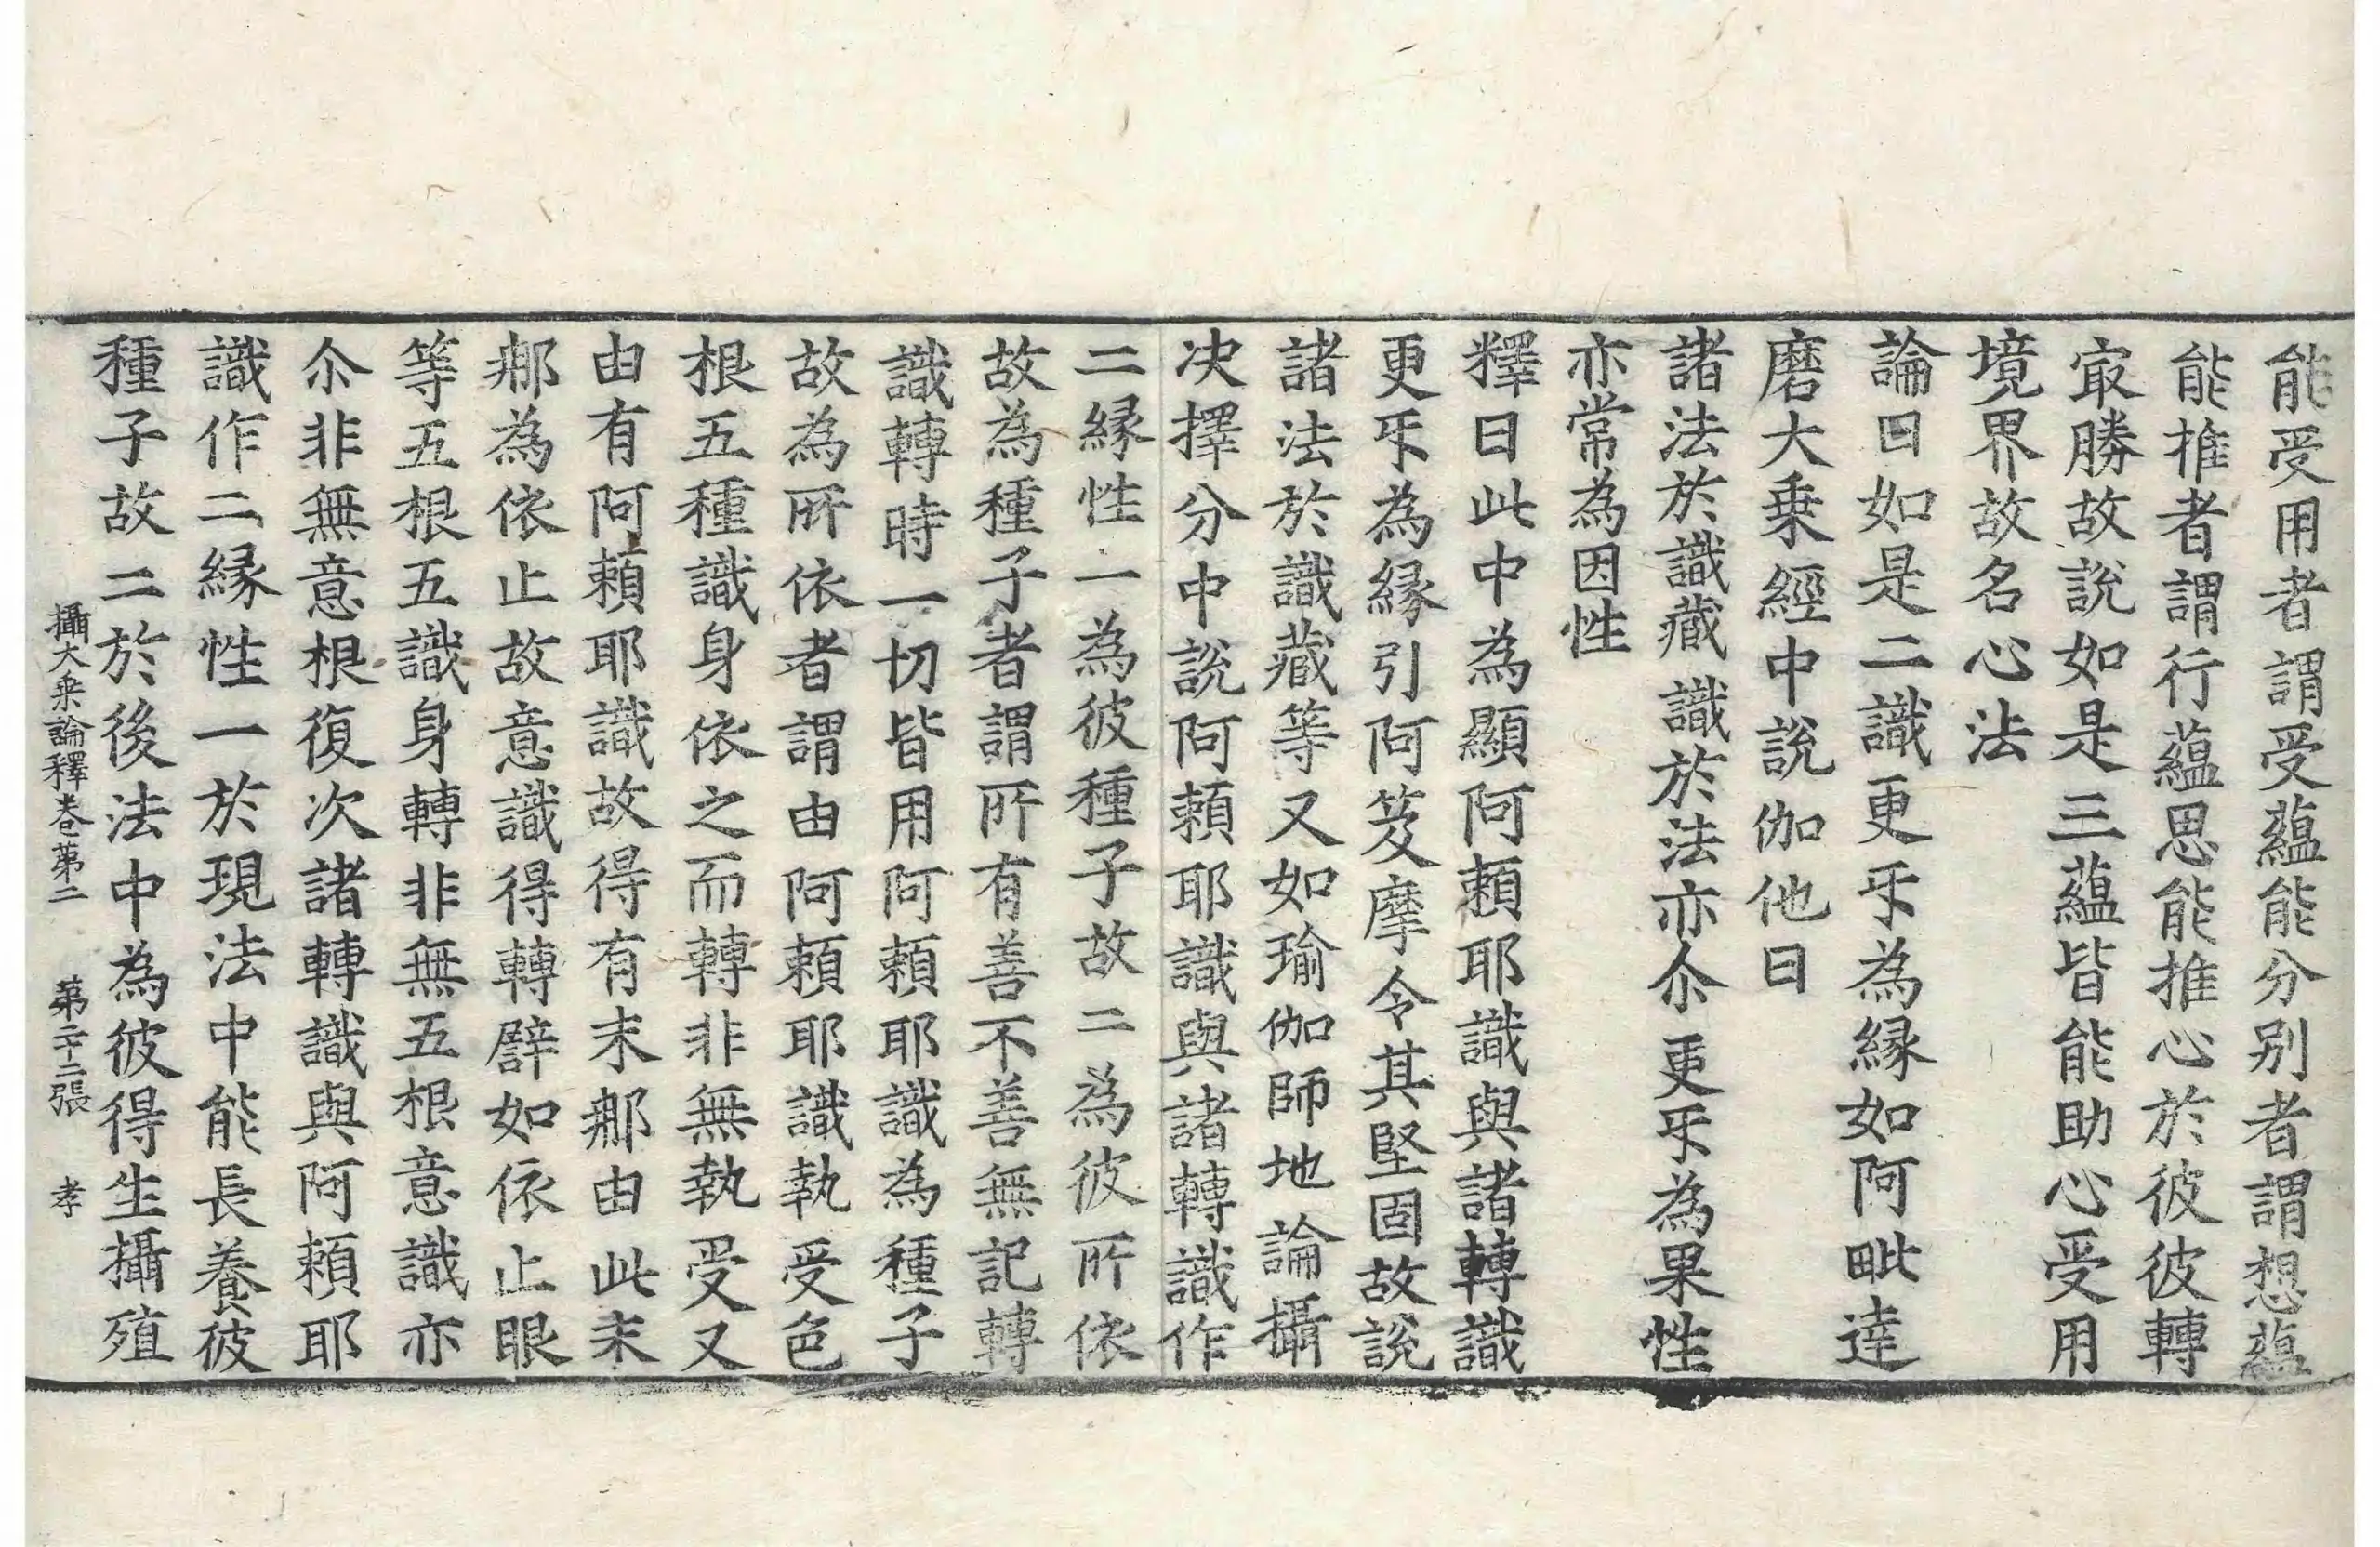 能受用者謂受蘊能分別者謂想蘊
能推者謂行蘊思能推心於彼彼轉
㝡勝故說如是三蘊皆能助心受用
境界故名心法
論曰如是二識更㸦為緣如阿毗達
磨大乗經中說伽他曰
諸法於識藏 識於法亦尒 更㸦為果性
亦常為因性
釋曰此中為顯阿頼耶識與諸轉識
更㸦為緣引阿笈摩令其堅固故說
諸法於識藏等又如瑜伽師地論攝
决擇分中說阿頼耶識與諸轉識作
二緣性一為彼種子故二為彼所依
故為種子者謂所有善不善無記轉
識轉時一切皆用阿頼耶識為種子
故為所依者謂由阿頼耶識執受色
根五種識身依之而轉非無執受又
由有阿頼耶識故得有末那由此末
那為依止故意識得轉譬如依止眼
等五根五識身轉非無五根意識亦
尒非無意根復次諸轉識與阿頼耶
識作二緣性一於現法中能長養彼
種子故二於後法中為彼得生攝殖
攝大乗論釋卷第二 第二十二張 孝